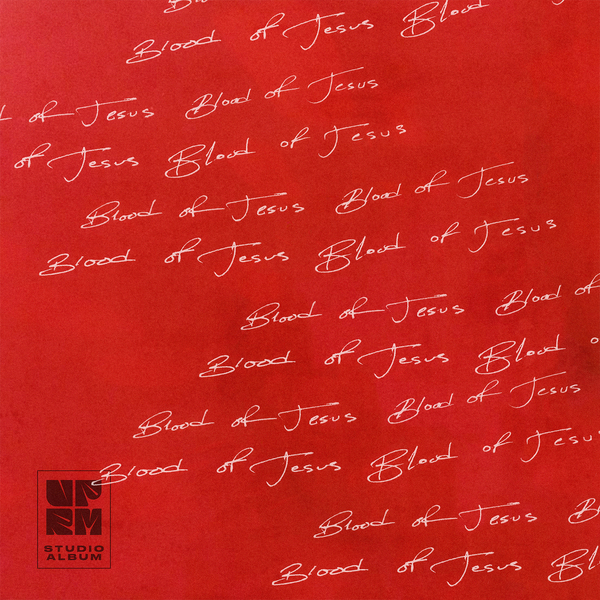 Blood of Jesus Blood
of Jesus Blood of Jesus
of Jesus Blood of Jesus
Blood of Jesus Blood of Jesus
Blood of Jesus Blood of Jesus
Blood of Jesus Blood of
Blood of Jesus Blood
Blood of Jesus Blood of Jesus
Blood of Jesus Blood of Jesus
Blood of Jesus
Blood of Jesus
UP
RM
STUDIO
ALBUM